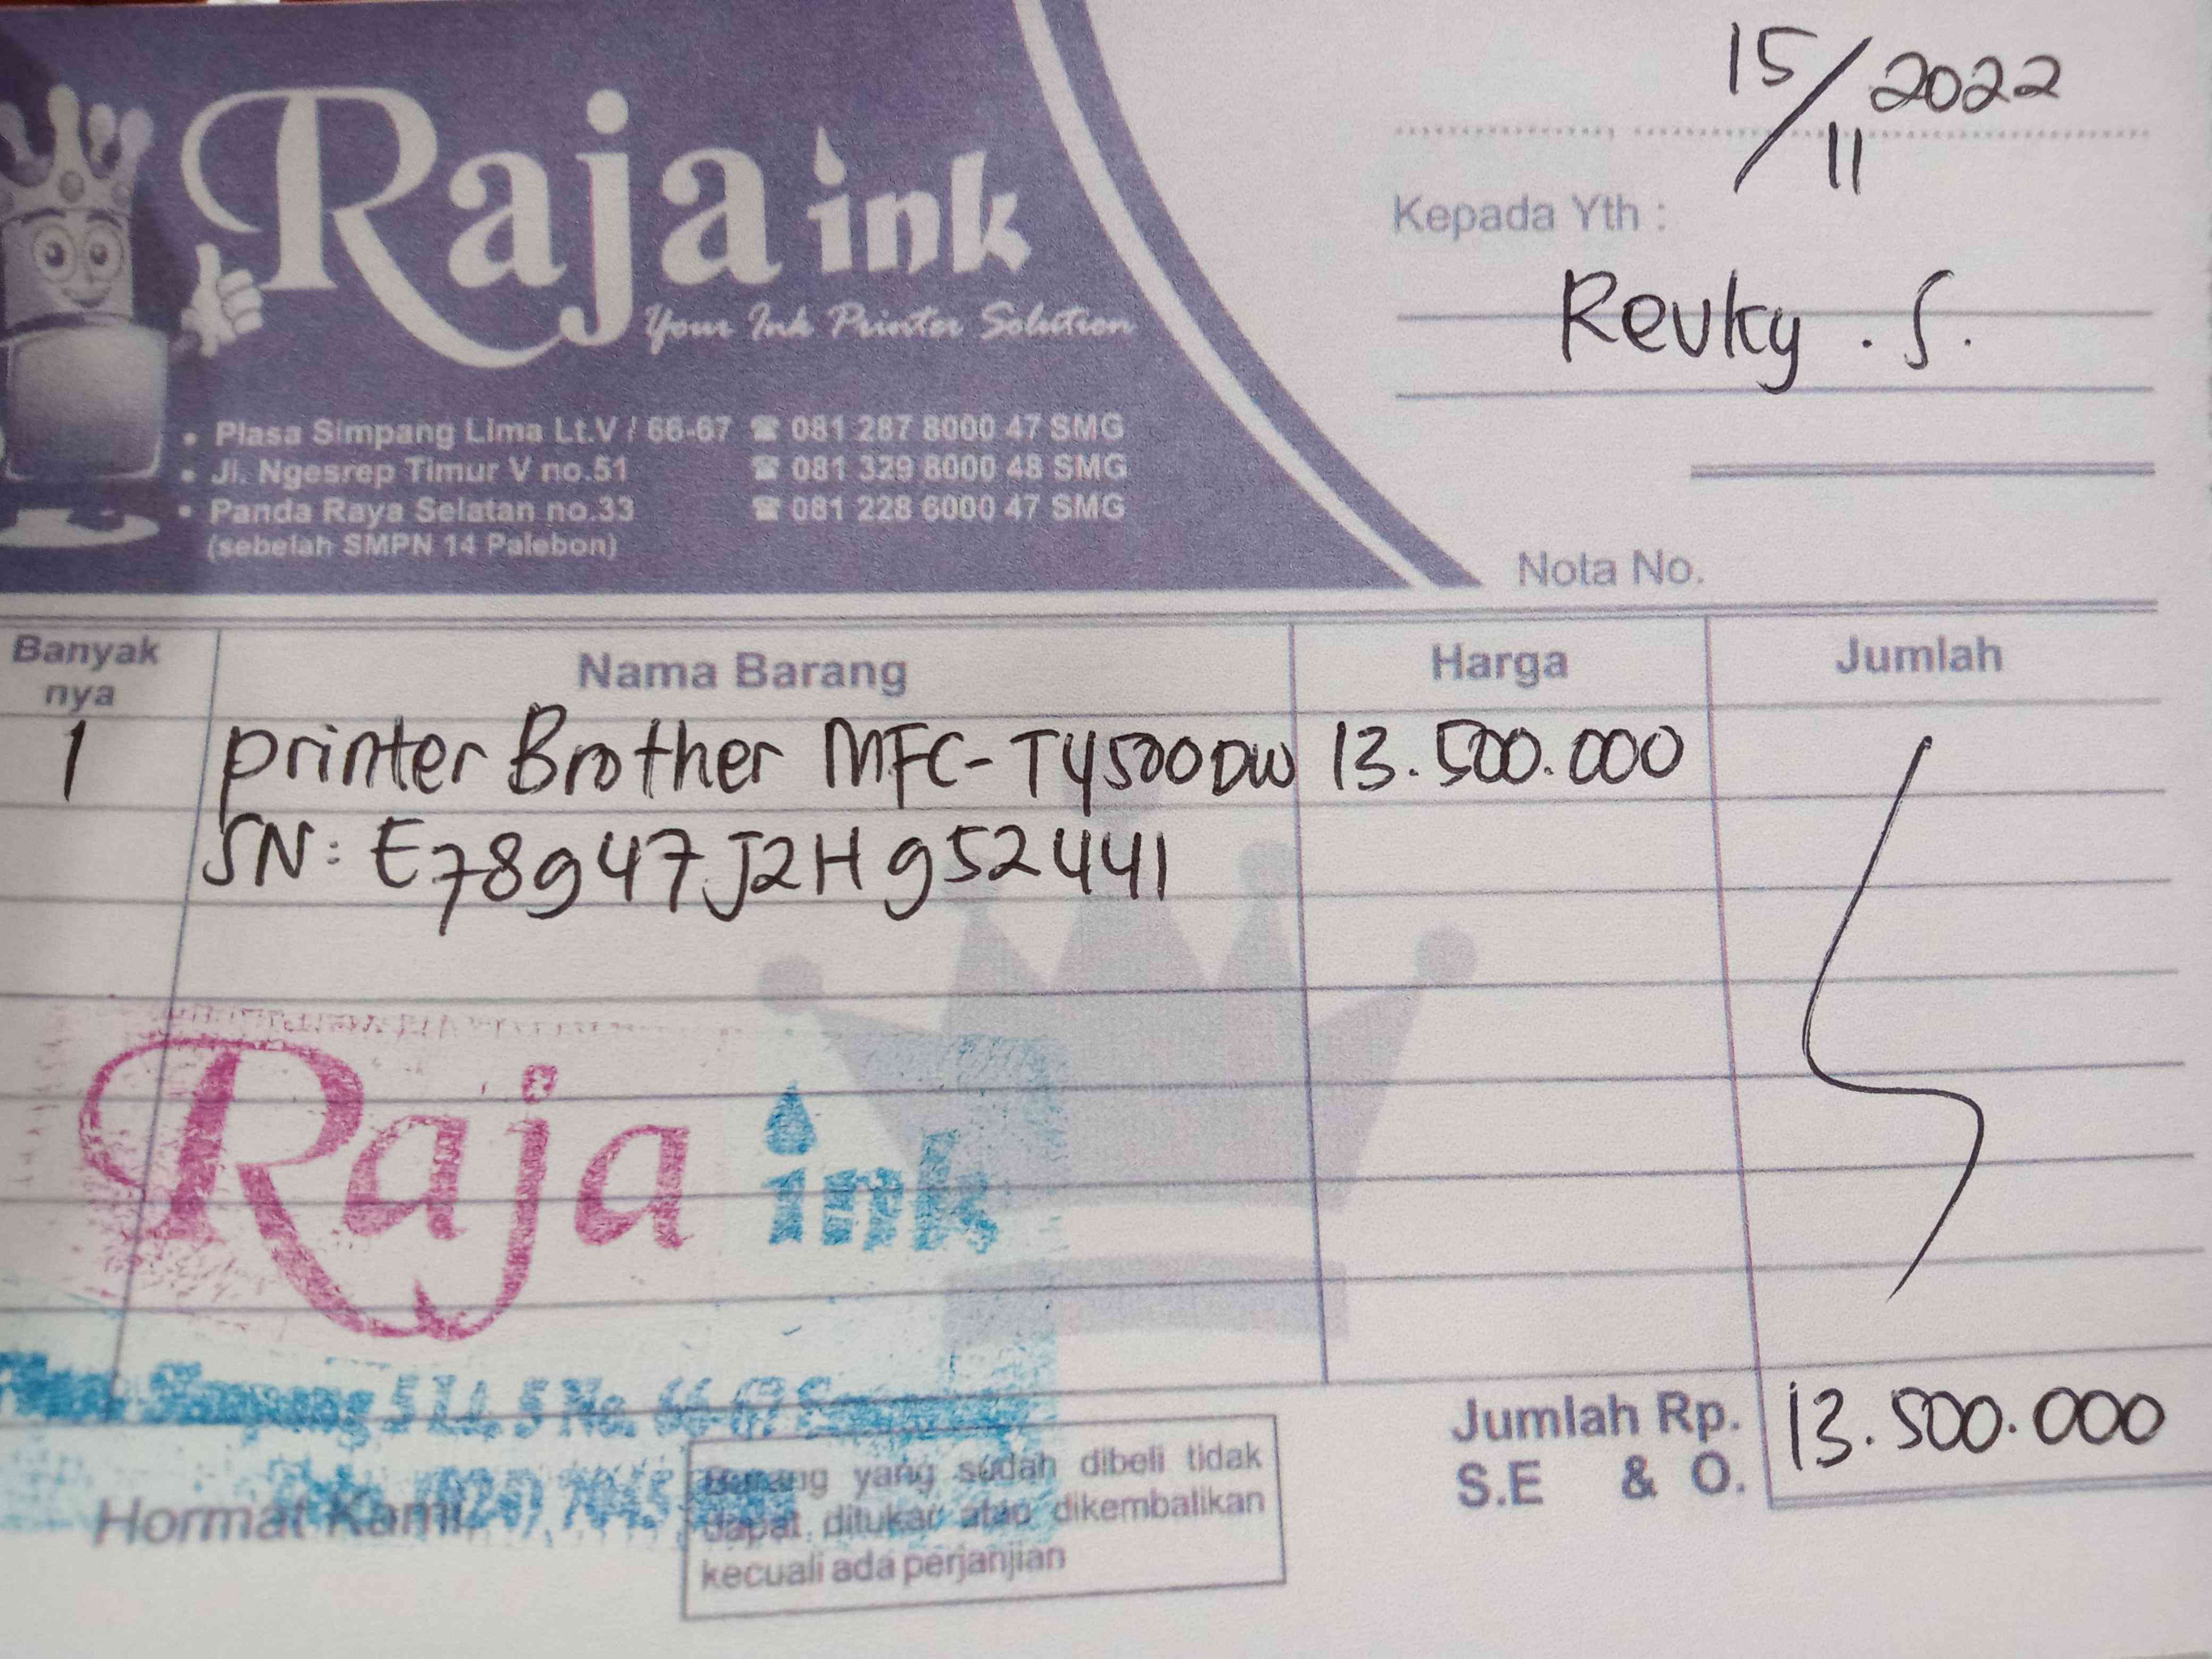 15/11 2022
Raja ink
Your Ink Printer Solution
Kepada Yth :
Revky . S.
• Plasa Simpang Lima Lt.V / 66-67 ☎ 081 287 8000 47 SMG
• Jl. Ngesrep Timur V no.51 ☎ 081 329 8000 48 SMG
• Panda Raya Selatan no.33 ☎ 081 228 6000 47 SMG
(sebelah SMPN 14 Palebon)
Nota No.
Banyak nya Nama Barang Harga Jumlah
1 printer Brother MFC-T4500DW 13.500.000
SN: E78947J2H952441
Raja ink
Simpang 5 Lt. 5 No. 66-67
Jumlah Rp. 13.500.000
S.E & O.
Hormat Kami,
Barang yang sudah dibeli tidak
dapat ditukar atau dikembalikan
kecuali ada perjanjian